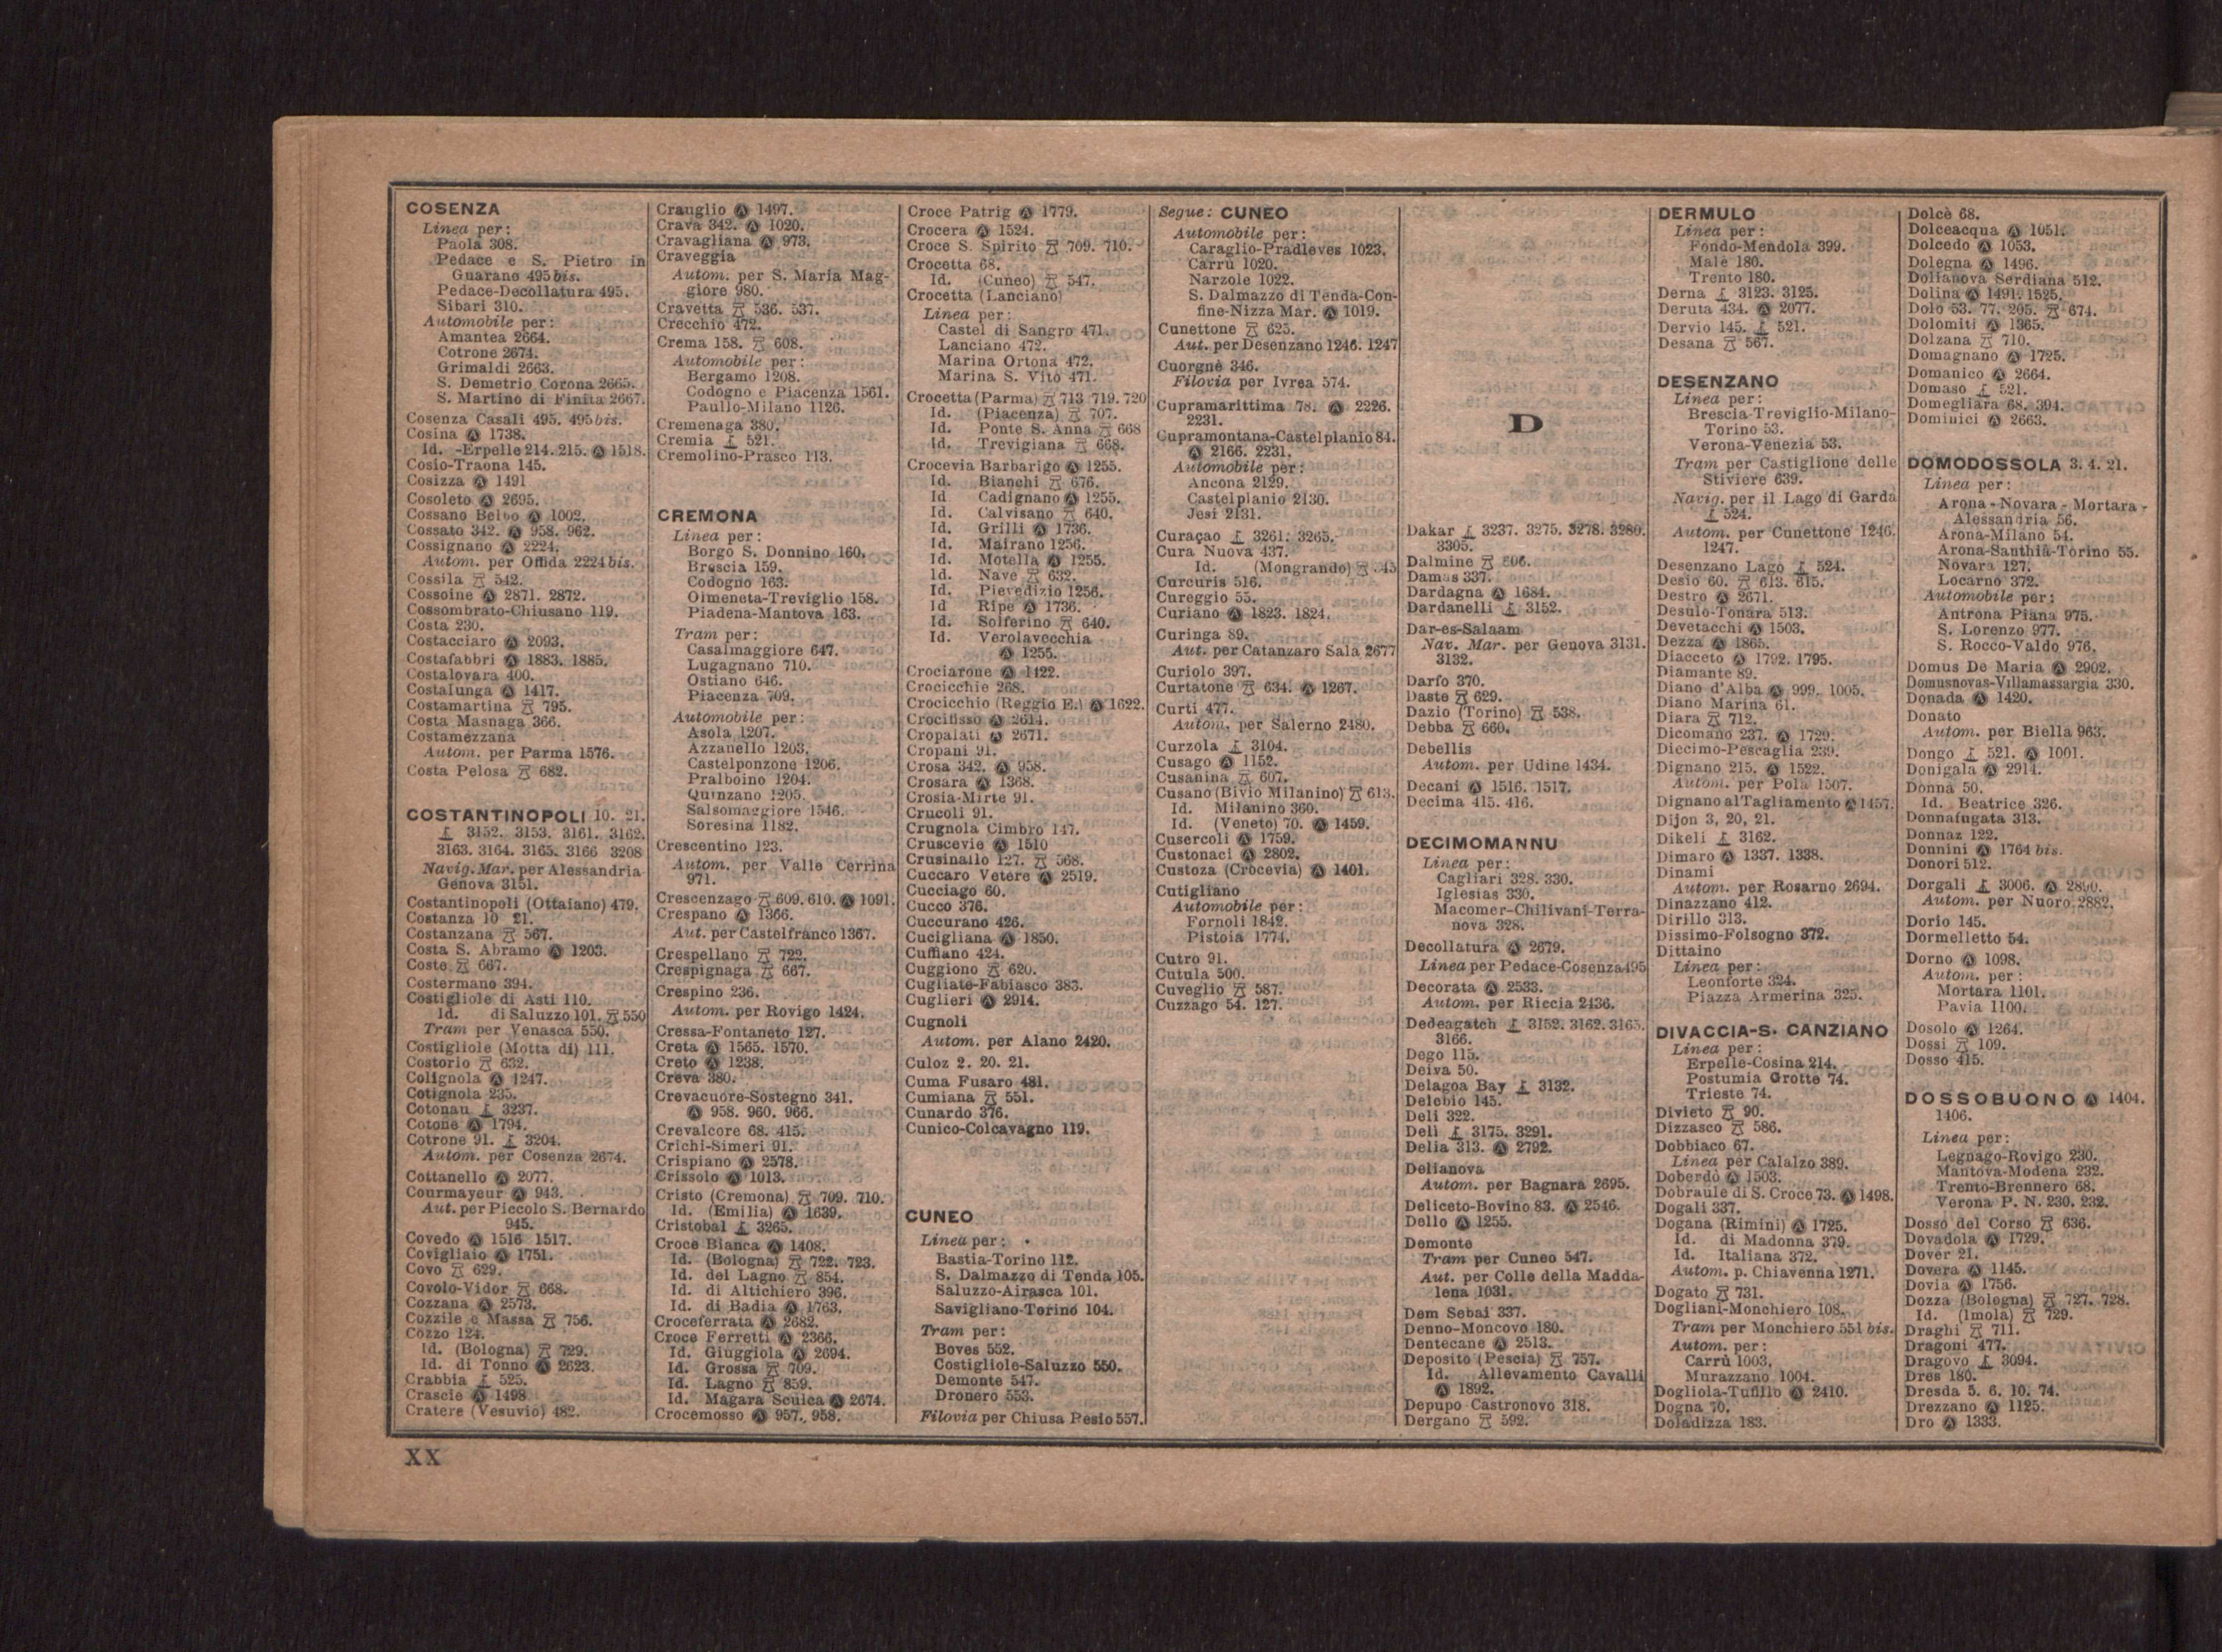 COSENZA
Linea per:
Paola 308.
Pedace e S. Pietro in
Guarano 495 bis.
Pedace-Decollatura 495.
Sibari 310.
Automobile per:
Amantea 2664.
Cotrone 2674.
Grimaldi 2663.
S. Demetrio Corona 2665.
S. Martino di Finita 2667.
Cosenza Casali 495. 495 bis.
Cosina Ⓐ 1738.
Id. -Erpelle 214. 215. Ⓐ 1518.
Cosio-Traona 145.
Cosizza Ⓐ 1491
Cosoleto Ⓐ 2695.
Cossano Belbo Ⓐ 1002.
Cossato 342. Ⓐ 958. 962.
Cossignano Ⓐ 2224.
Autom. per Offida 2224 bis.
Cossila 542.
Cossoine Ⓐ 2871. 2872.
Cossombrato-Chiusano 119.
Costa 230.
Costacciaro Ⓐ 2093.
Costafabbri Ⓐ 1883. 1885.
Costalovara 400.
Costalunga Ⓐ 1417.
Costamartina 795.
Costa Masnaga 366.
Costamezzana
Autom. per Parma 1576.
Costa Pelosa 682.
COSTANTINOPOLI 10. 21.
3152. 3153. 3161. 3162.
3163. 3164. 3165. 3166 3208
Navig. Mar. per Alessandria-
Genova 3151.
Costantinopoli (Ottaiano) 479.
Costanza 10 21.
Costanzana 567.
Costa S. Abramo Ⓐ 1203.
Coste 667.
Costermano 394.
Costigliole di Asti 110.
Id. di Saluzzo 101. 550
Tram per Venasca 550.
Costigliole (Motta di) 111.
Costorio 632.
Cotignola Ⓐ 1247.
Cotignola 235.
Cotonau 3237.
Cotone Ⓐ 1794.
Cotrone 91. 3204.
Autom. per Cosenza 2674.
Cottanello Ⓐ 2077.
Courmayeur Ⓐ 943.
Aut. per Piccolo S. Bernardo
945.
Covedo Ⓐ 1516 1517.
Covigliaio Ⓐ 1751.
Covo 629.
Covolo-Vidor 668.
Cozzana Ⓐ 2573.
Cozzile e Massa 756.
Cozzo 124.
Id. (Bologna) 729.
Id. di Tonno Ⓐ 2623.
Crabbia 525.
Crascie Ⓐ 1498
Cratere (Vesuvio) 482.
Crauglio Ⓐ 1497.
Crava 342. Ⓐ 1020.
Cravagliana Ⓐ 973.
Craveggia
Autom. per S. Maria Mag-
giore 980.
Cravetta 536. 537.
Crecchio 472.
Crema 158. 608.
Automobile per:
Bergamo 1208.
Codogno e Piacenza 1561.
Paullo-Milano 1126.
Cremenaga 380.
Cremia 521.
Cremolino-Prasco 113.
CREMONA
Linea per:
Borgo S. Donnino 160.
Brescia 159.
Codogno 163.
Olmeneta-Treviglio 158.
Piadena-Mantova 163.
Tram per:
Casalmaggiore 647.
Lugagnano 710.
Ostiano 646.
Piacenza 709.
Automobile per:
Asola 1207.
Azzanello 1203.
Castelponzone 1206.
Pralboino 1204.
Quinzano 1205.
Salsomaggiore 1546.
Soresina 1182.
Crescentino 123.
Autom. per Valle Cerrina
971.
Crescenzago 609. 610. Ⓐ 1091.
Crespano Ⓐ 1366.
Aut. per Castelfranco 1367.
Crespellano 722.
Crespignaga 667.
Crespino 236.
Autom. per Rovigo 1424.
Cressa-Fontaneto 127.
Creta Ⓐ 1565. 1570.
Creto Ⓐ 1238.
Creva 380.
Crevacuore-Sostegno 341.
Ⓐ 958. 960. 966.
Crevalcore 68. 415.
Crichi-Simeri 91.
Crispiano Ⓐ 2578.
Crissolo Ⓐ 1013.
Cristo (Cremona) 709. 710.
Id. (Emilia) Ⓐ 1639.
Cristobal 3265.
Croce Bianca Ⓐ 1408.
Id. (Bologna) 722. 723.
Id. del Lagno 854.
Id. di Altichiero 396.
Id. di Badia Ⓐ 1763.
Croceferrata Ⓐ 2682.
Croce Ferretti Ⓐ 2366.
Id. Giuggiola Ⓐ 2694.
Id. Grossa 709.
Id. Lagno 859.
Id. Magara Scuica Ⓐ 2674.
Crocemosso Ⓐ 957. 958.
Croce Patrig Ⓐ 1779.
Crocera Ⓐ 1524.
Croce S. Spirito 709. 710.
Crocetta 68.
Id. (Cuneo) 547.
Crocetta (Lanciano)
Linea per:
Castel di Sangro 471.
Lanciano 472.
Marina Ortona 472.
Marina S. Vito 471.
Crocetta (Parma) 713 719. 720
Id. (Piacenza) 707.
Id. Ponte S. Anna 668
Id. Trevigiana 668.
Crocevia Barbarigo Ⓐ 1255.
Id. Bianchi 676.
Id Cadignano Ⓐ 1255.
Id. Calvisano 640.
Id. Grilli Ⓐ 1736.
Id. Mairano 1256.
Id. Motella Ⓐ 1255.
Id. Nave 632.
Id. Pievedizio 1256.
Id Ripe Ⓐ 1736.
Id. Solferino 640.
Id. Verolavecchia
Ⓐ 1255.
Crociarone Ⓐ 1422.
Crocicchie 268.
Crocicchio (Reggio E.) Ⓐ 1622.
Crocifisso Ⓐ 2614.
Cropalati Ⓐ 2671.
Cropani 91.
Crosa 342. Ⓐ 958.
Crosara Ⓐ 1368.
Crosia-Mirte 91.
Crucoli 91.
Crugnola Cimbro 147.
Cruscevie Ⓐ 1510
Crusinallo 127. 568.
Cuccaro Vetere Ⓐ 2519.
Cucciago 60.
Cucco 376.
Cuccurano 426.
Cucigliana Ⓐ 1850.
Cuffiano 424.
Cuggiono 620.
Cugliate-Fabiasco 383.
Cuglieri Ⓐ 2914.
Cugnoli
Autom. per Alano 2420.
Culoz 2. 20. 21.
Cuma Fusaro 481.
Cumiana 551.
Cunardo 376.
Cunico-Colcavagno 119.
CUNEO
Linea per:
Bastia-Torino 112.
S. Dalmazzo di Tenda 105.
Saluzzo-Airasca 101.
Savigliano-Torino 104.
Tram per:
Boves 552.
Costigliole-Saluzzo 550.
Demonte 547.
Dronero 553.
Filovia per Chiusa Pesio 557.
Segue: CUNEO
Automobile per:
Caraglio-Pradleves 1023.
Carrù 1020.
Narzole 1022.
S. Dalmazzo di Tenda-Con-
fine-Nizza Mar. Ⓐ 1019.
Cunettone 625.
Aut. per Desenzano 1246. 1247
Cuorgnè 346.
Filovia per Ivrea 574.
Cupramarittima 78. Ⓐ 2226.
2231.
Cupramontana-Castelplanio 84.
Ⓐ 2166. 2231.
Automobile per:
Ancona 2129.
Castelplanio 2130.
Jesi 2131.
Curaçao 3261. 3265.
Cura Nuova 437.
Id. (Mongrando) 45
Curcuris 516.
Cureggio 55.
Curiano Ⓐ 1823. 1824.
Curinga 89.
Aut. per Catanzaro Sala 2677
Curiolo 397.
Curtatone 634. Ⓐ 1267.
Curti 477.
Autom. per Salerno 2480.
Curzola 3104.
Cusago Ⓐ 1152.
Cusanina 607.
Cusano (Bivio Milanino) 613.
Id. Milanino 360.
Id. (Veneto) 70. Ⓐ 1459.
Cusercoli Ⓐ 1759.
Custonaci Ⓐ 2802.
Custoza (Crocevia) Ⓐ 1401.
Cutigliano
Automobile per:
Fornoli 1842.
Pistoia 1774.
Cutro 91.
Cutula 500.
Cuveglio 587.
Cuzzago 54. 127.
D
Dakar 3237. 3275. 3278. 3280.
3305.
Dalmine 606.
Damas 337.
Dardagna Ⓐ 1684.
Dardanelli 3152.
Dar-es-Salaam
Nav. Mar. per Genova 3131.
3132.
Darfo 370.
Daste 629.
Dazio (Torino) 538.
Debba 660.
Debellis
Autom. per Udine 1434.
Decani Ⓐ 1516. 1517.
Decima 415. 416.
DECIMOMANNU
Linea per:
Cagliari 328. 330.
Iglesias 330.
Macomer-Chilivani-Terra-
nova 328.
Decollatura Ⓐ 2679.
Linea per Pedace-Cosenza 495
Decorata Ⓐ 2533.
Autom. per Riccia 2436.
Dedeagatch 3152. 3162. 3165.
3166.
Dego 115.
Deiva 50.
Delagoa Bay 3132.
Delebio 145.
Deli 322.
Deli 3175. 3291.
Delia 313. Ⓐ 2792.
Delianova
Autom. per Bagnara 2695.
Deliceto-Bovino 83. Ⓐ 2546.
Dello Ⓐ 1255.
Demonte
Tram per Cuneo 547.
Aut. per Colle della Madda-
lena 1031.
Dem Sebai 337.
Denno-Moncovo 180.
Dentecane Ⓐ 2513.
Deposito (Pescia) 757.
Id. Allevamento Cavalli
Ⓐ 1892.
Depupo Castronovo 318.
Dergano 592.
DERMULO
Linea per:
Fondo-Mendola 399.
Malè 180.
Trento 180.
Derna 3123. 3125.
Deruta 434. Ⓐ 2077.
Dervio 145. 521.
Desana 567.
DESENZANO
Linea per:
Brescia-Treviglio-Milano-
Torino 53.
Verona-Venezia 53.
Tram per Castiglione delle
Stiviere 639.
Navig. per il Lago di Garda
524.
Autom. per Cunettone 1246.
1247.
Desenzano Lago 524.
Desio 60. 613. 615.
Destro Ⓐ 2671.
Desulo-Tonara 513.
Devetacchi Ⓐ 1503.
Dezza Ⓐ 1865.
Diacceto Ⓐ 1792. 1795.
Diamante 89.
Diano d'Alba Ⓐ 999. 1005.
Diano Marina 61.
Diara 712.
Dicomano 237. Ⓐ 1729.
Diecimo-Pescaglia 239.
Dignano 215. Ⓐ 1522.
Autom. per Pola 1507.
Dignano al Tagliamento Ⓐ 1457.
Dijon 3, 20, 21.
Dikeli 3162.
Dimaro Ⓐ 1337. 1338.
Dinami
Autom. per Rosarno 2694.
Dinazzano 412.
Dirillo 313.
Dissimo-Folsogno 372.
Dittaino
Linea per:
Leonforte 324.
Piazza Armerina 325.
DIVACCIA-S. CANZIANO
Linea per:
Erpelle-Cosina 214.
Postumia Grotte 74.
Trieste 74.
Divieto 90.
Dizzasco 586.
Dobbiaco 67.
Linea per Calalzo 389.
Doberdò Ⓐ 1503.
Dobraule di S. Croce 73. Ⓐ 1498.
Dogali 337.
Dogana (Rimini) Ⓐ 1725.
Id. di Madonna 379.
Id. Italiana 372.
Autom. p. Chiavenna 1271.
Dogato 731.
Dogliani-Monchiero 108.
Tram per Monchiero 551 bis.
Autom. per:
Carrù 1003.
Murazzano 1004.
Dogliola-Tufillo Ⓐ 2410.
Dogna 70.
Doladizza 183.
Dolcè 68.
Dolceacqua Ⓐ 1051.
Dolcedo Ⓐ 1053.
Dolegna Ⓐ 1496.
Dolianova Serdiana 512.
Dolina Ⓐ 1491. 1525.
Dolo 53. 77. 205. 674.
Dolomiti Ⓐ 1365.
Dolzana 710.
Domagnano Ⓐ 1725.
Domanico Ⓐ 2664.
Domaso 521.
Domegliara 68. 394.
Dominici Ⓐ 2663.
DOMODOSSOLA 3. 4. 21.
Linea per:
Arona-Novara-Mortara-
Alessandria 56.
Arona-Milano 54.
Arona-Santhià-Torino 55.
Novara 127.
Locarno 372.
Automobile per:
Antrona Piana 975.
S. Lorenzo 977.
S. Rocco-Valdo 976.
Domus De Maria Ⓐ 2902.
Domusnovas-Villamassargia 330.
Donada Ⓐ 1420.
Donato
Autom. per Biella 963.
Dongo 521. Ⓐ 1001.
Donigala Ⓐ 2914.
Donna 50.
Id. Beatrice 326.
Donnafugata 313.
Donnaz 122.
Donnini Ⓐ 1764 bis.
Donori 512.
Dorgali 3006. Ⓐ 2890.
Autom. per Nuoro 2882.
Dorio 145.
Dormelletto 54.
Dorno Ⓐ 1098.
Autom. per:
Mortara 1101.
Pavia 1100.
Dosolo Ⓐ 1264.
Dossi 109.
Dosso 415.
DOSSOBUONO Ⓐ 1404.
1406.
Linea per:
Legnago-Rovigo 230.
Mantova-Modena 232.
Trento-Brennero 68.
Verona P. N. 230. 232.
Dosso del Corso 636.
Dovadola Ⓐ 1729.
Dover 21.
Dovera Ⓐ 1145.
Dovia Ⓐ 1756.
Dozza (Bologna) 727. 728.
Id. (Imola) 729.
Draghi 711.
Dragoni 477.
Dragovo 3094.
Dres 180.
Dresda 5. 6. 10. 74.
Drezzano Ⓐ 1125.
Dro Ⓐ 1333.
XX